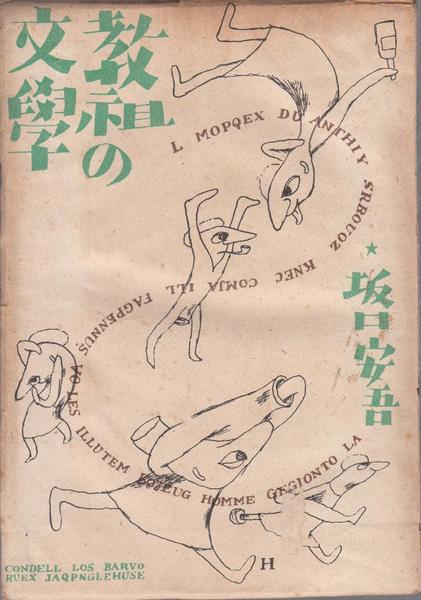 教祖の
文學
★坂口安吾
L MOPQEX DU ANTHIY SRBOUOZ KNEC COMJA ILL FAGPENNUS LES ILLUTEM HOMME GEGIONTO LA
H
CONDELL LOS BARVO
RUEX JAQPNGLEHUSE